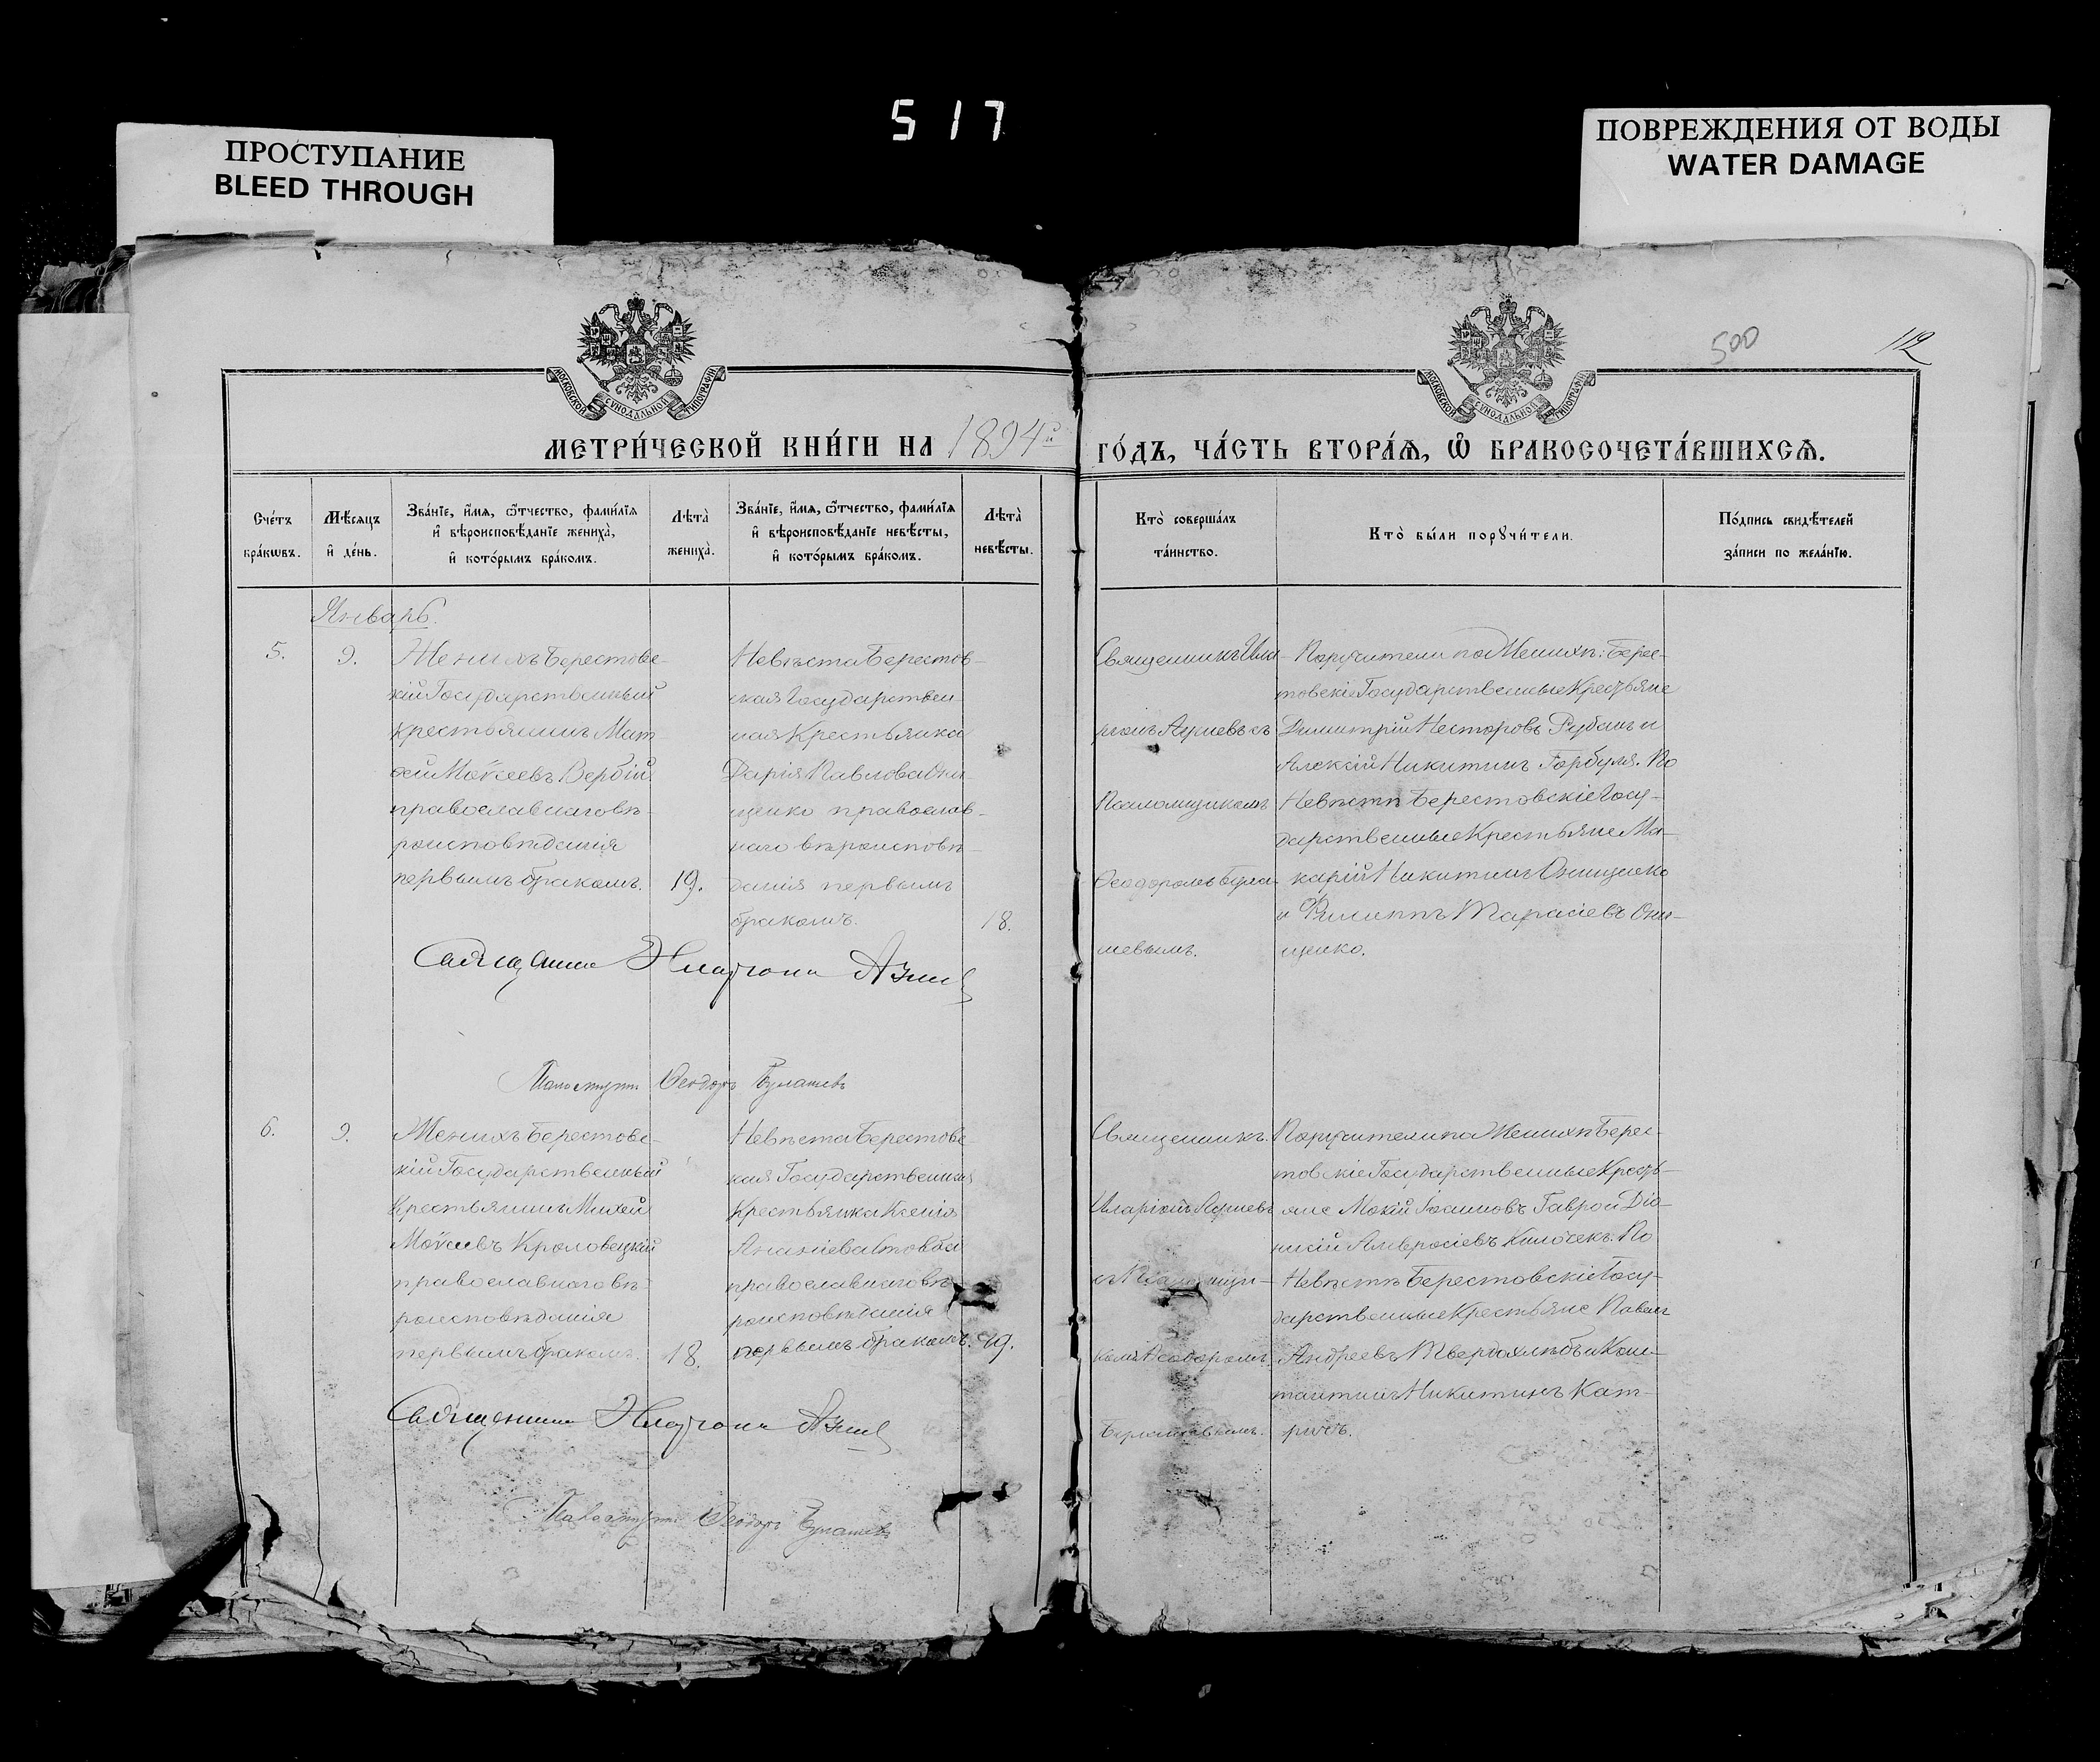 517
ПРОСТУПАНИЕ
BLEED THROUGH
ПОВРЕЖДЕНИЯ ОТ ВОДЫ
WATER DAMAGE
500
112
МОСКОВСКОЙ СУНОДАЛЬНОЙ ТИПОГРАФІИ
МОСКОВСКОЙ СУНОДАЛЬНОЙ ТИПОГРАФІИ
МЕТРИ́ЧЕСКОЙ КНИ́ГИ НА 1894й ГО́ДЪ, ЧА́СТЬ ВТОРА́Ѧ, Ѽ БРАКОСОЧЕТА́ВШИХСѦ.
Сче́тъ бра́кѡвъ.
Мѣ́сяцъ и҆ де́нь.
Зва́нїе, и҆́мѧ, ѻ҆́тчество, фами́лїѧ
и҆ вѣроисповѣ́данїе жениха̀,
и҆ кото́рымъ бра́комъ.
Лѣта̀ жениха̀.
Зва́нїе, и҆́мѧ, ѻ҆́тчество, фами́лїѧ
и҆ вѣроисповѣ́данїе невѣ́сты,
и҆ кото́рымъ бра́комъ.
Лѣта̀ невѣ́сты.
Кто̀ соверша́лъ та́инство.
Кто̀ бы́ли порꙋчи́тели.
По́дпись свидѣ́телей за́писи по жела́нїю.
Январь.
5.
9.
Женихъ Берестовс-
кій Государственный
крестьянинъ Мат-
ѳей Моѵсеевъ Вербій
православнаго вѣ-
роисповѣданія
первымъ бракомъ.
19.
Невѣста Берестов-
ская Государствен-
ная Крестьянка
Дарія Павлова Они-
щенко православ-
наго вѣроисповѣ-
данія первымъ
бракомъ.
18.
Священникъ Ила-
ріонъ Ауліевъ съ
Псаломщикомъ
Ѳеодоромъ Була-
шевымъ.
Поручители по Женихѣ: Берес-
товскіе Государственные Крестьяне
Димитрій Несторовъ Рубанъ и
Алексій Никитинъ Горбуля. По
Невѣстѣ Берестовскіе Госу-
дарственные Крестьяне Ма-
карій Никитинъ Онищенко
и Филиппъ Тарасіевъ Они-
щенко.
Священникъ Иларіонъ
Ѳеодоръ Булашевъ
6.
9.
Женихъ Берестовс-
кій Государственный
Крестьянинъ Михей
Моѵсеевъ Кроловецкій
православнаго вѣ-
роисповѣданія
первымъ бракомъ.
18.
Невѣста Берестовс-
кая Государственная
Крестьянка Ксенія
Ананіева Стовба
православнаго вѣ-
роисповѣданія
первымъ бракомъ.
19.
Священникъ
Иларіонъ
комъ Ѳеодоромъ
Булашевымъ.
Поручители по Женихѣ Берес-
товскіе Государственные Кресть-
яне Мокій Іоанновъ Гавро и Діо-
нисій Амвросіевъ Килочекъ. По
Невѣстѣ Берестовскіе Госу-
дарственные Крестьяне Павелъ
Андреевъ Твердохлѣбъ и Конс-
тантинъ Никитинъ Кат-
ричъ.
Священникъ Иларіонъ
Ѳеодоръ Булашевъ